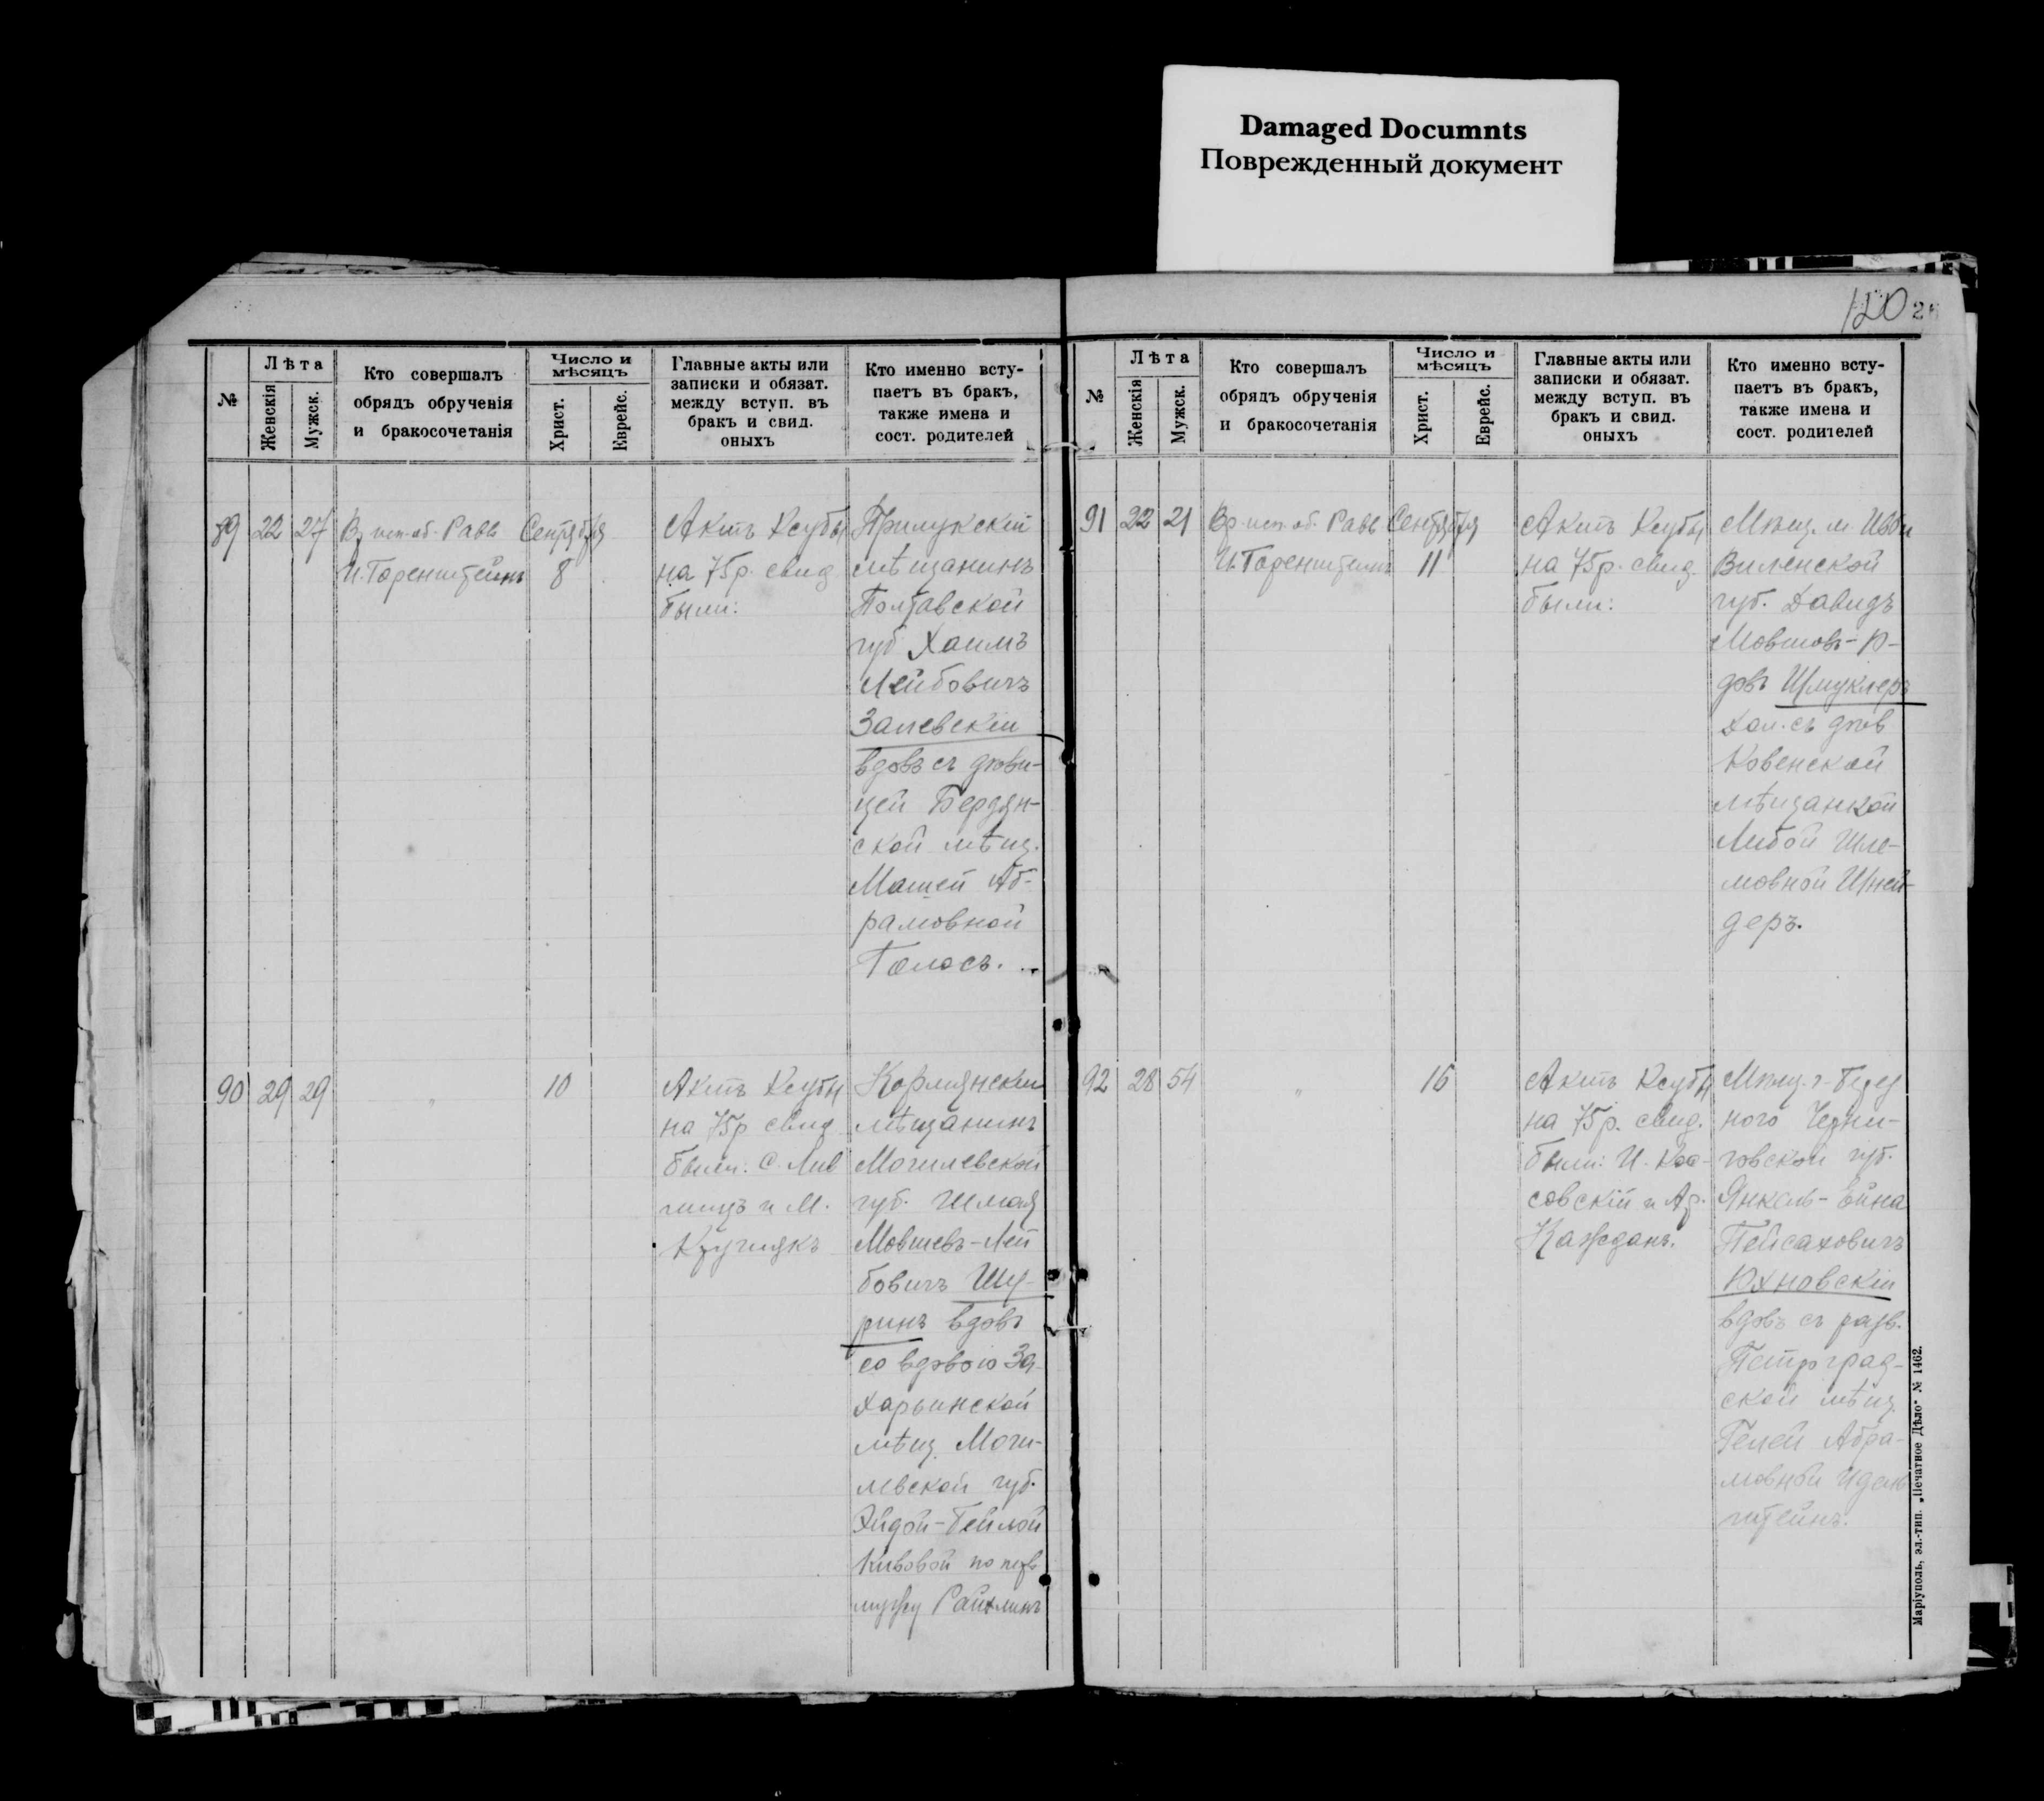 Damaged Documnts
Поврежденный документ
120
№
Лѣта
Женскія
Мужск.
Кто совершалъ
обрядъ обрученія
и бракосочетанія
Число и
мѣсяцъ
Христ.
Еврейс.
Главные акты или
записки и обязат.
между вступ. въ
бракъ и свид.
оныхъ
Кто именно всту-
паетъ въ бракъ,
также имена и
сост. родителей
89 22 27
Вр исп. об. Равв
И. Горенштейнъ
Сентября
8
Актъ Ксубы
на 75р. свид
были:
Прилукскій
мѣщанинъ
Полтавской
губ Хаимъ
Лейбовичъ
Залевскій
вдовъ съ дѣви-
цей Бердян-
ской мѣщ.
Машей Аб-
рамовной
Голосъ.
90 29 29
"
10
Актъ Ксубы
на 75р свид
были: С. Лив
шицъ и М.
Кормянскій
мѣщанинъ
Могилевской
губ. Шмая
Мовшевъ-Лей
бовичъ Шу-
ринъ вдовъ
со вдовою За-
харьинской
мѣщ. Моги-
левской губ.
Эйдой-Бейлой
Кивовой по перв
мужу Райхлинъ
№
Лѣта
Женскія
Мужск.
Кто совершалъ
обрядъ обрученія
и бракосочетанія
Число и
мѣсяцъ
Христ.
Еврейс.
Главные акты или
записки и обязат.
между вступ. въ
бракъ и свид.
оныхъ
Кто именно всту-
паетъ въ бракъ,
также имена и
сост. родителей
91 22 21
Вр. исп. об. Равв
И. Горенштейнъ
Сентября
11
Актъ Ксубы
на 75р. свид.
были:
Мѣщ. м Ивви
Виленской
губ. Давидъ
Мовшовъ-Ю-
довъ Шмуклеръ
хол. съ дѣв
Ковенской
мѣщанкой
Либой Шле-
мовной Шней-
деръ.
92 28 54
"
16
Актъ Ксубы
на 75р. свид.
были: И. Кос-
совскій и Ар.
Кажданъ.
Мѣщ. г.
ного Черни-
говской губ.
Янкель-Ейна
Пейсаховичъ
Юхновскій
вдовъ съ разв.
Петроград-
ской мѣщ
Геней Абра-
мовной Идель
штейнъ.
Маріуполь, эл.-тип. „Печатное Дѣло" № 1462.